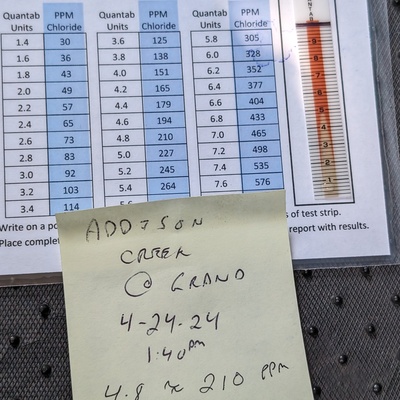 Quantab Units PPM Chloride Quantab Units PPM Chloride Quantab Units PPM Chloride
1.4 30 3.6 125 5.8 305
1.6 36 3.8 138 6.0 328
1.8 43 4.0 151 6.2 352
2.0 49 4.2 165 6.4 377
2.2 57 4.4 179 6.6 404
2.4 65 4.6 194 6.8 433
2.6 73 4.8 210 7.0 465
2.8 83 5.0 227 7.2 498
3.0 92 5.2 245 7.4 535
3.2 103 5.4 264 7.6 576
3.4 114
Write on a po s of test strip.
Place complet report with results.
ADDISON
CREEK
@ GRAND
4-24-24
1:40 pm
4.8 ≈ 210 PPM
9
8
7
6
5
4
3
2
1